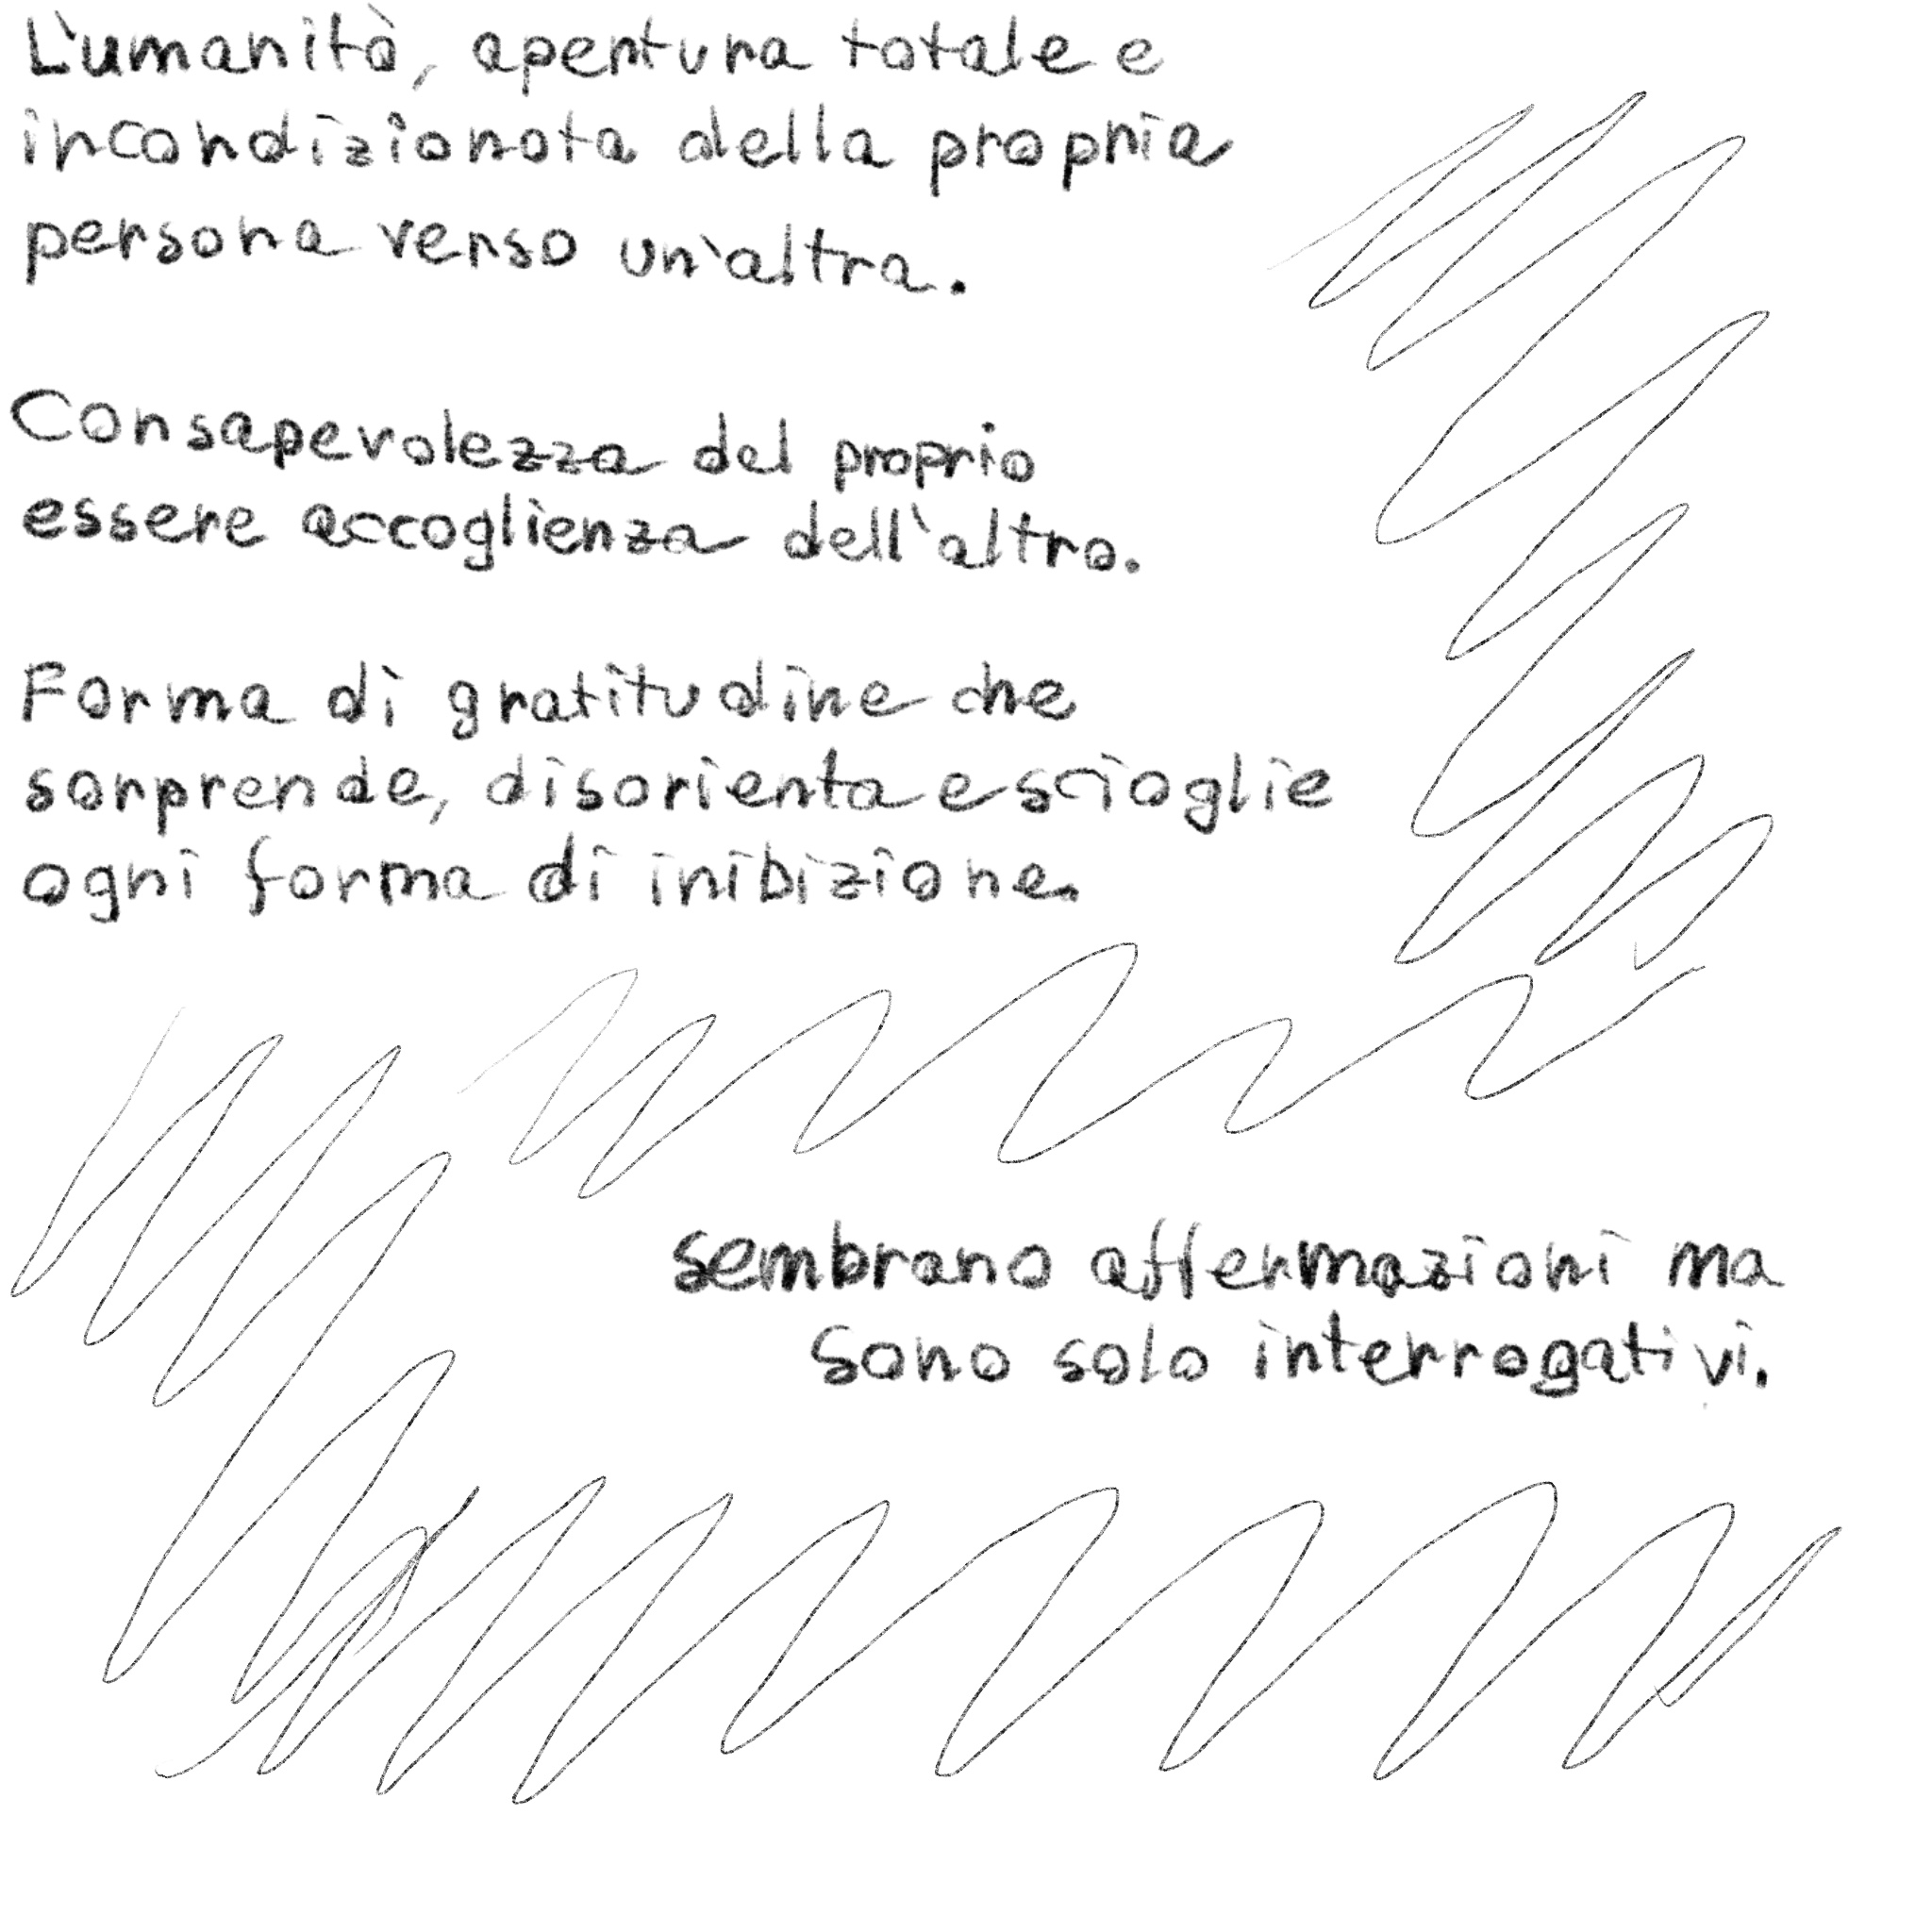 L'umanità, apertura totale e
incondizionata della propria
persona verso un'altra.
Consapevolezza del proprio
essere accoglienza dell'altro.
Forma di gratitudine che
sorprende, disorienta e scioglie
ogni forma di inibizione.
sembrano affermazioni ma
sono solo interrogativi.